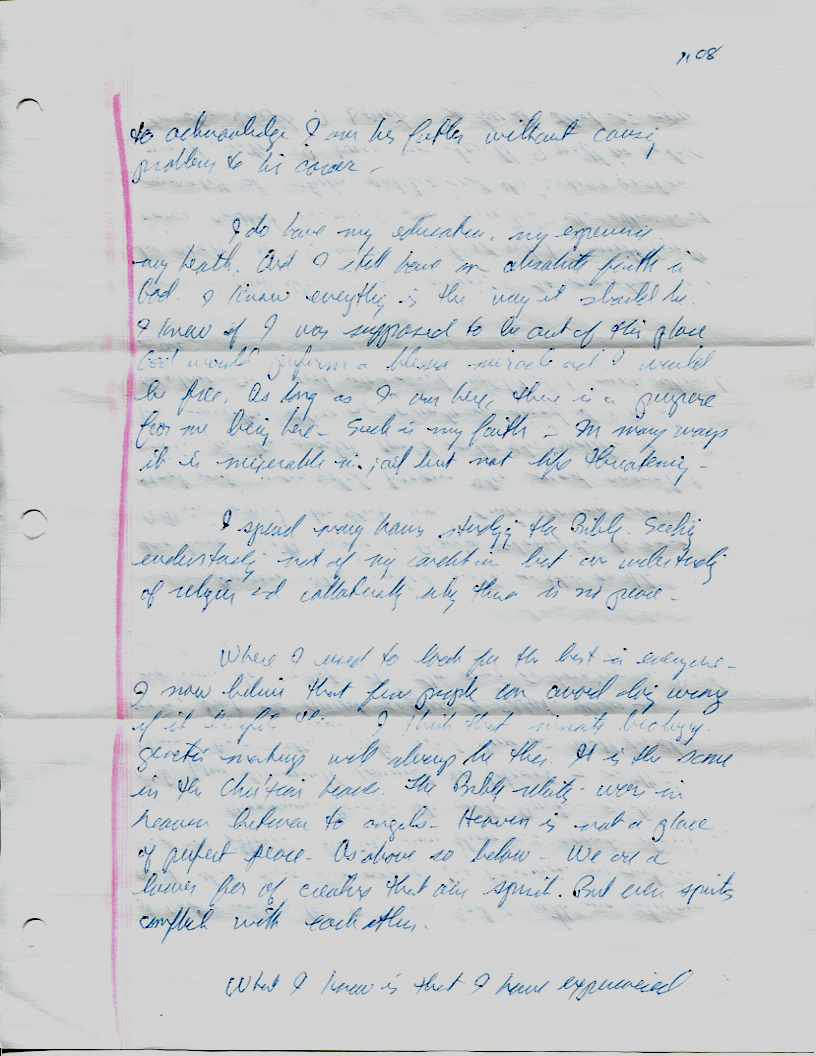 to acknowledge I am his father without causing
problems to his career -
I do have my education, my experience
my health. And I still have an absolute faith in
God. I know everything is the way it should be.
I know if I was supposed to be out of this place
God would perform a blessed miracle and I would
be free. As long as I am here, there is a purpose
for me being here - Such is my faith - In many ways
it is miserable in jail but not life threatening -
I spend many hours studying the Bible. Seeking
understanding not of my condition but an understanding
of religion and collaterally why there is no peace -
Where I used to look for the best in everyone -
I now believe that few people can avoid doing wrong
if it benefits them. I think that innate biology
genetic markings will always be there. It is the same
in the Christian heaven. The Bible relates war in
heaven between the angels - Heaven is not a place
of perfect peace - As above so below - We are a
lower tier of creation that are spirit. But even spirits
conflict with each other.
What I know is that I have experienced